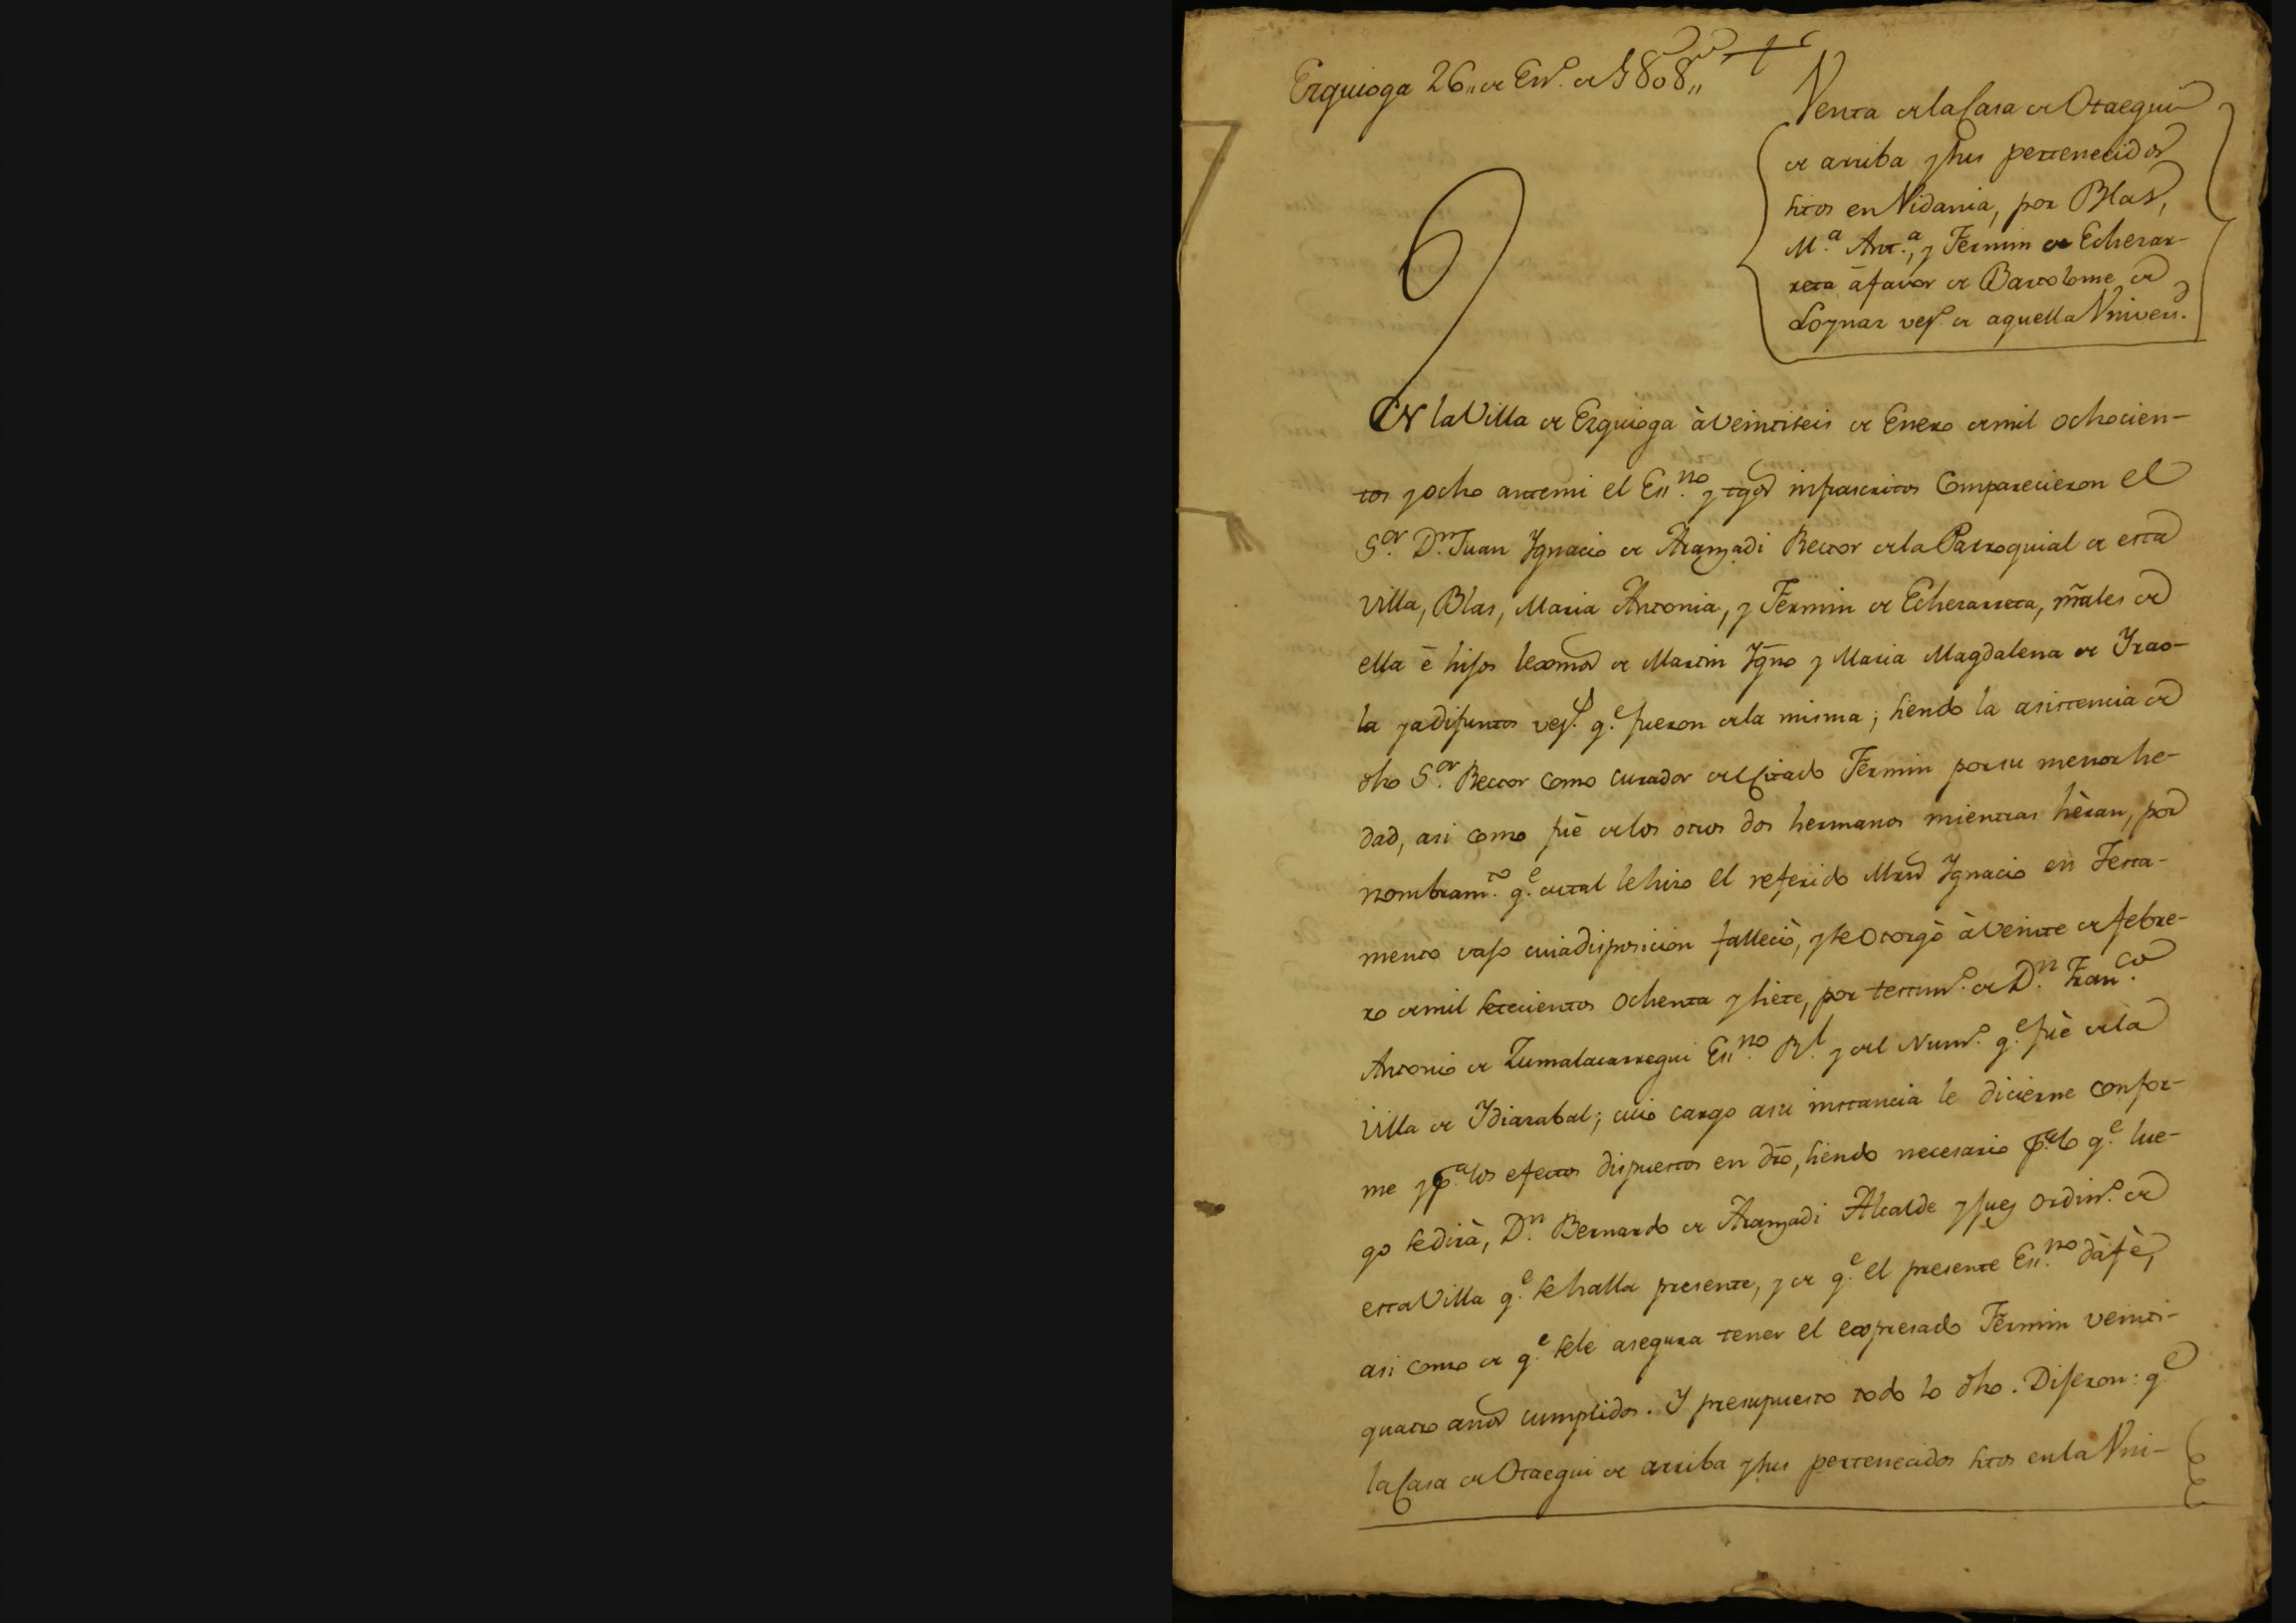 Ezquioga 26,, de En.º de 1808,,
Venta de la Casa de Otaegui
de arriba y sus pertenecidos
sitos en Vidania, por Blas,
M.ª Ant.ª, y Fermin de Echezar-
reta à favor de Bartolome de
Loynaz vez.º de aquella Univers.
En la Villa de Ezquioga à Veintiseis de Enero de mil ochocien-
tos y ocho antemi el Ess.no y tgos infrascritos Comparecieron el
S.or D.n Juan Ygnacio de Aranzadi Rector de la Parroquial de esta
Villa, Blas, Maria Antonia, y Fermin de Echezarreta, nrales de
ella è hijos lexmos de Martin Ygno y Maria Magdalena de Yrao-
la ya difuntos vez.s q.e fueron de la misma; siendo la asistencia de
dho S.or Rector como curador del Citado Fermin por su menor he-
dad, asi como fuè de los otros dos hermanos mientras hèran, por
nombram.to q.e de tal le hizo el referido Mrn Ygnacio en Testa-
mento vajo cuia disposicion falleciò, y se Otorgò à Veinte de febre-
ro de mil setecientos ochenta y siete, por testim.º de D.n Fran.co
Antonio de Zumalacarregui Ess.no R.l y del Num.º q.e fuè de la
Villa de Ydiazabal; cuio cargo asu instancia le dicierne confor-
me y p.a los efectos dispuestos en dro, siendo necesario p.a lo q.e lue-
go se dirà, D.n Bernardo de Aranzadi Alcalde y Juez Ordin.º de
esta Villa q.e se halla presente, y de q.e el presente Ess.no dà fè,
asi como de q.e sele asegura tener el expresado Fermin veinti-
quatro años cumplidos. Y presupuesto todo lo dho. Dijeron: q.e
la Casa de Otaegui de arriba y sus pertenecidos sitos en la Uni-